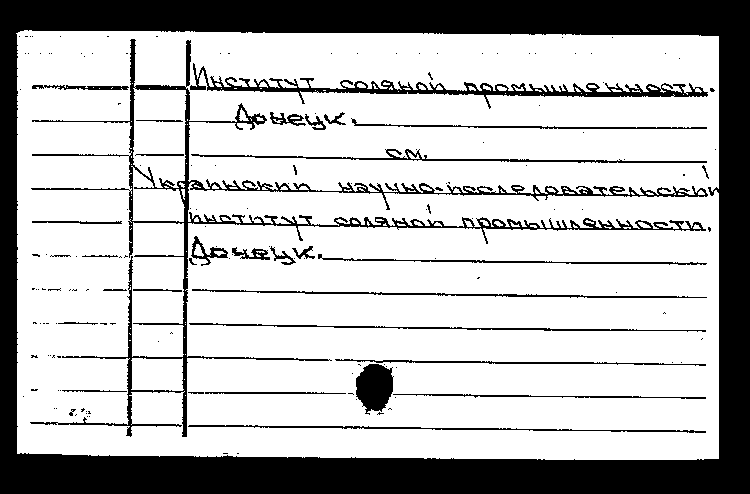 Институт соляной промышленность.
Донецк.
см.
Украинский научно-исследовательский
институт соляной промышленности.
Донецк.